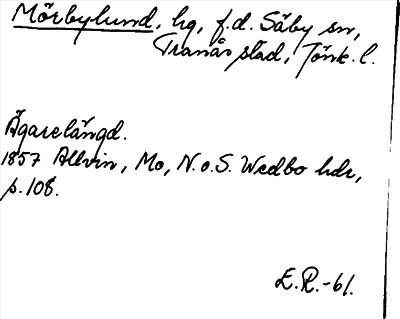 Mörbylund, hg, f.d. Säby sn,
Tranås stad, Jönk. l.
Ägarelängd.
1857 Allvin, Mo, N.o.S. Wedbo hdr,
p. 108.
E.R.-61.